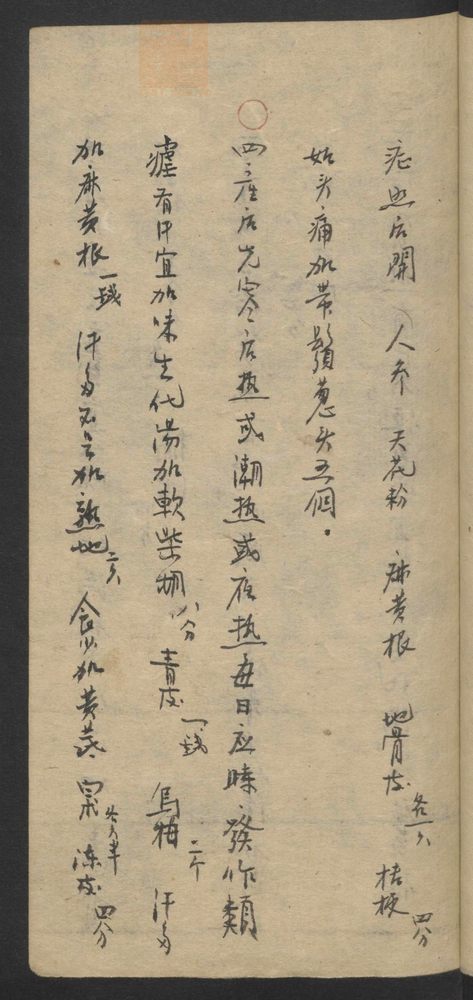 症照后開 人参 天花粉 麻黄根 地骨皮各一 桔梗四分
如头痛加带鬚葱头五個
四産后先寒后热或潮热或夜热每日应時發作類
瘧有汗宜加味生化湯加軟柴胡八分 青皮一錢 烏梅二个 汗多
加麻黄根一錢 汗多不止加熟地 食少加黄芪 陳皮四分